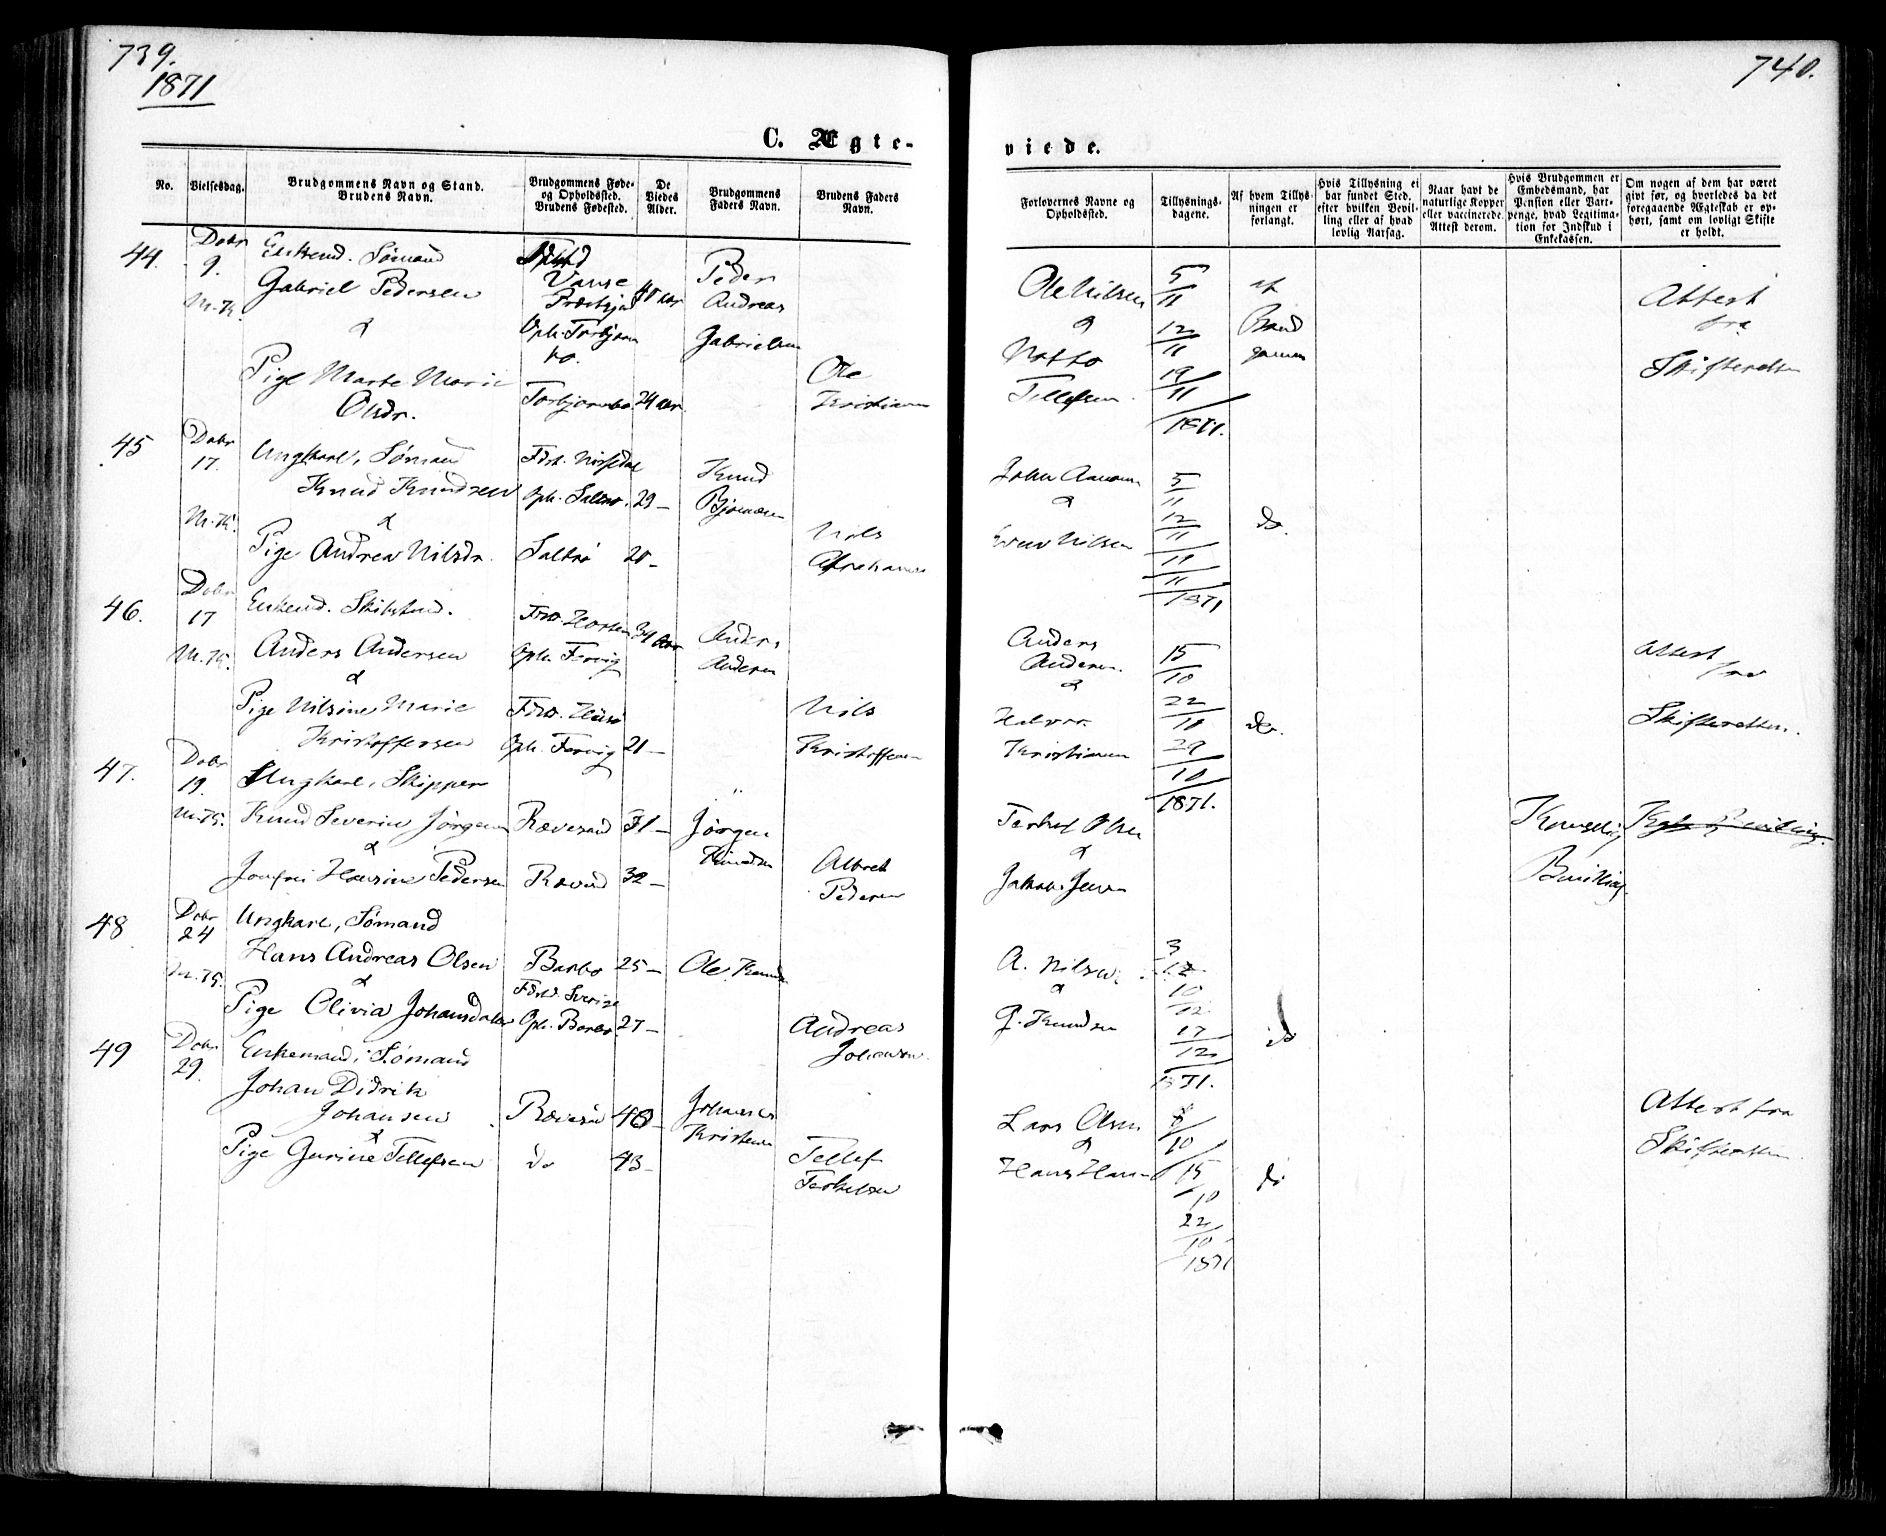 739.
1871
740.
C. Ægte-
viede.
No.
Vielsesdag.
Brudgommens Navn og Stand.
Brudens Navn.
Brudgommens Føde-
og Opholdssted.
Brudens Fødested.
De
Viedes
Alder.
Brudgommens
Faders Navn.
Brudens Faders
Navn.
Forlovernes Navne og
Opholdssted.
Tillysnings-
dagene.
Af hvem Tillys-
ningen er
forlangt.
Hvis Tillysning ei
har fundet Sted,
efter hvilken Bevil-
ling eller af hvad
lovlig Aarsag.
Naar havt de
naturlige Kopper
eller vaccinerede.
Attest derom.
Hvis Brudgommen er
Embedsmand, har
Pension eller Vart-
penge, hvad Legitima-
tion for Indskud i
Enkekassen.
Om nogen af dem har været
gift før, og hvorledes da det
foregaaende Ægteskab er op-
hørt, samt om lovligt Skifte
er holdt.
44.
Dcbr
9.
M.K.
Enkemd. Sømand
Gabriel Pedersen
&
Pige Marte Marie
Olsdr.
Vanse
Præstgjd
Oph. Torbjørn
bo.
Torbjørnsbo 24 aar
Peder
Andreas
Gabrielsen
Ole
Kristiansen
Ole Nilsen
&
Notto
Tellefsen
5/11
12/11
19/11
1871.
af
Brud
gommen
Attest
fra
Skifteretten
45
Dcbr
17.
M.K.
Ungkarl, Sømand
Knud Knudsen
&
Pige Andrea Nilsdr.
Fdst. Nissedal
Oph. Saltrø. 29 –
Saltrø 20 –
Knud
Bjørnsen
Nils
Abrahamsen
John Aanonsen
&
Nilsen
5/11
12/11
/11
1871
do.
46.
Dcbr
17
M.K.
Enkemd. Skibstmd.
Anders Andersen
&
Pige Nilsine Marie
Kristoffersen
Oph. Fervig
Oph. Fervig 21 –
Anders
Andersen
Nils
Kristoffersen
Anders
Andersen.
&
Halvor
Kristiansen
15/10
22/10
29/10
1871.
do.
Attest
fra
Skifteretten.
47.
Dcbr
19.
M.K.
Ungkarl, Skipper
Knud Severin Jørgensen
&
Jomfru Hansine Pedersen
Rævesand 31 –
Rævesnd 32 –
Jørgen
Knudsen
Albret
Pedersen
Terkel Olsen
&
Jakob Jensen
Kongelig
Bevilling
Kgl. Bevilling.
48
Dcbr
24
M.K.
Ungkarl, Sømand
Hans Andreas Olsen
&
Pige Olivia Johansdatter
Barbo 25 –
Fdst. Sverige
Oph. Barbo 27 –
Ole Knudsen
Andreas
Johansen.
A. Nilsen
&
G. Knudsen
3/12
10/12
17/12
1871.
do
49
Dcbr
29.
Enkemand, Sømand
Johan Didrik
Johansen
&
Pige Gurine Tellefsen
Rævesand 40 –
do 43 –
Johannes
Kristensen
Tellef
Terkelsen
Lars Olsen
&
Hans Hansen
8/10
15/10
22/10
1871
do
Attest fra
Skifteretten.